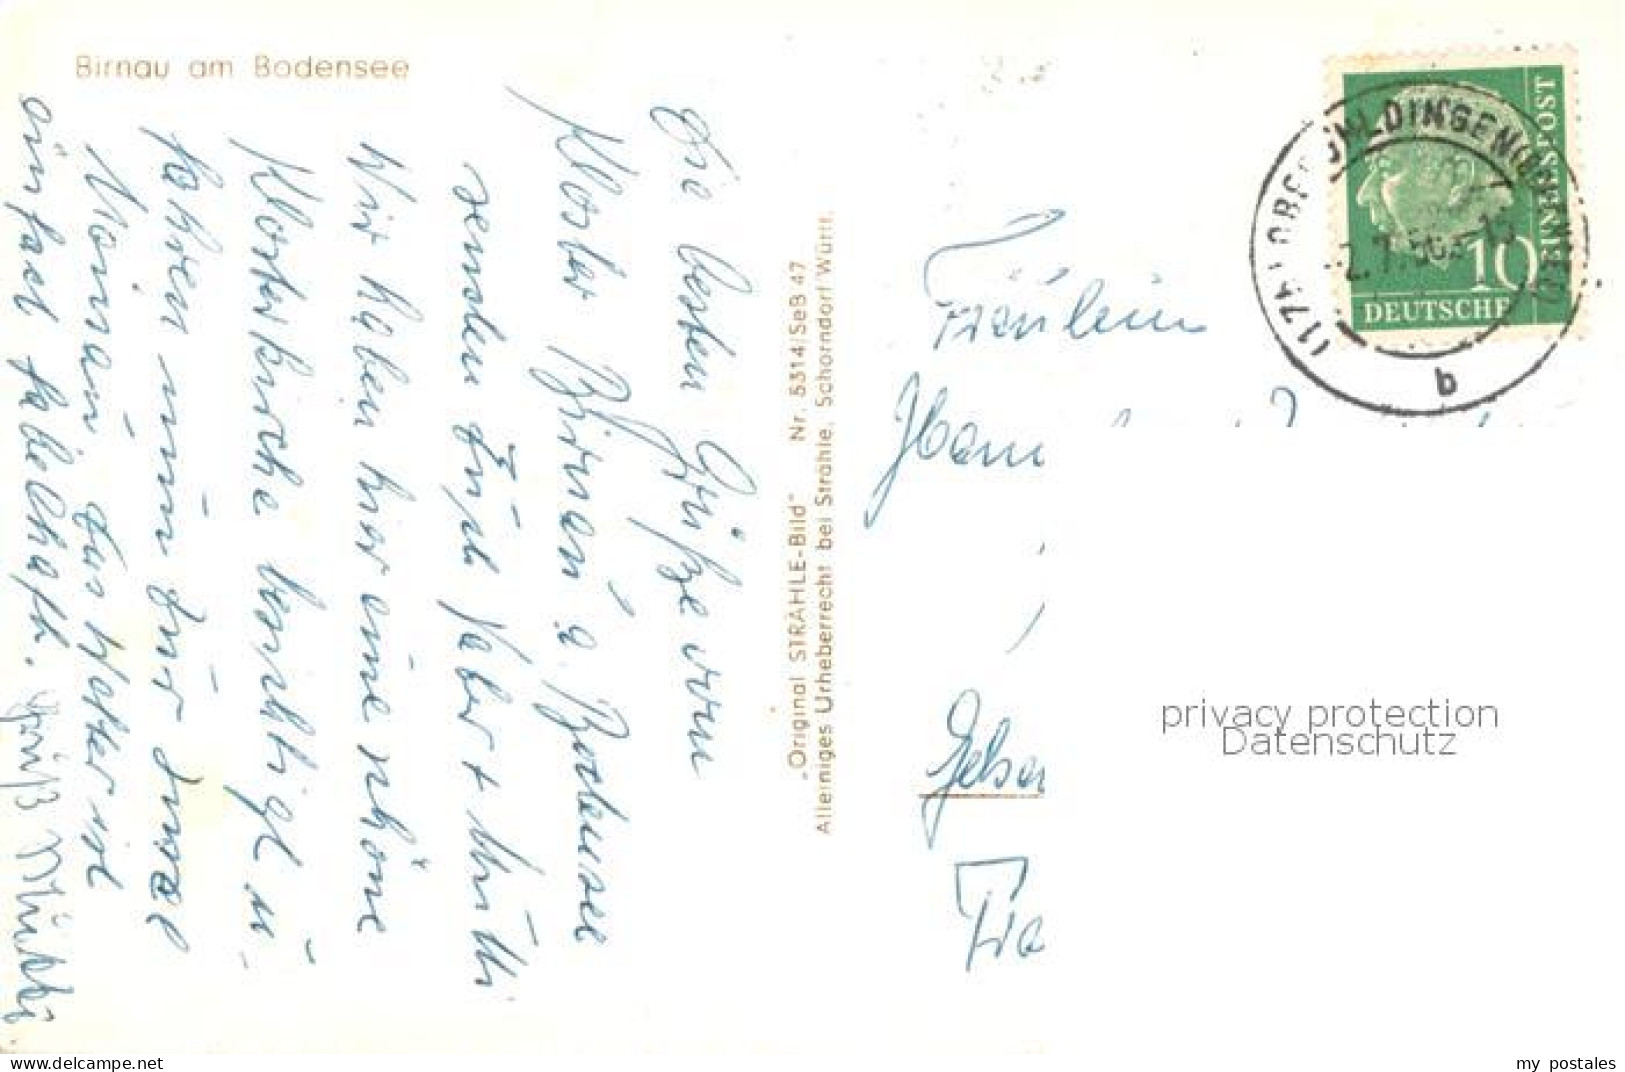 Birnau am Bodensee
Die besten Grüße vom
Kloster Birnau a. Bodensee
senden Euch Vater + Mutti
Wir haben hier eine schöne
Klosterkirche besichtigt u.
fahren nun zur Insel
Mainau. Das Wetter ist
einfach fabelhaft.
Gruß Mutti
„Original STRÄHLE-Bild" Nr. 5314/SeB 47
Alleiniges Urheberrecht bei Strähle, Schorndorf Württ.
DEUTSCHE
10
b
Fräulein
privacy protection
Datenschutz
delcampe.net
my_postales